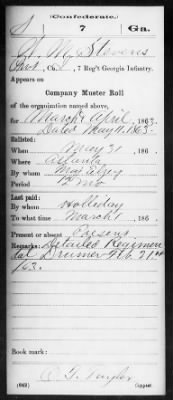 (Confederate.)
S 7 Ga.
M. Stevens
Pvt, Co. , 7 Reg't Georgia Infantry.
Appears on
Company Muster Roll
of the organization named above,
for March & April, 1863.
Dated May 11, 1863.
Enlisted:
When May 31, 186 .
Where Atlanta
By whom Maj
Period 2
Last paid:
By whom Holliday
To what time March 1, 186 .
Present or absent Present
Remarks: Detailed Regimen
tal Drumer Feb. 21st
/63.
Book mark:
(642) Copyist.